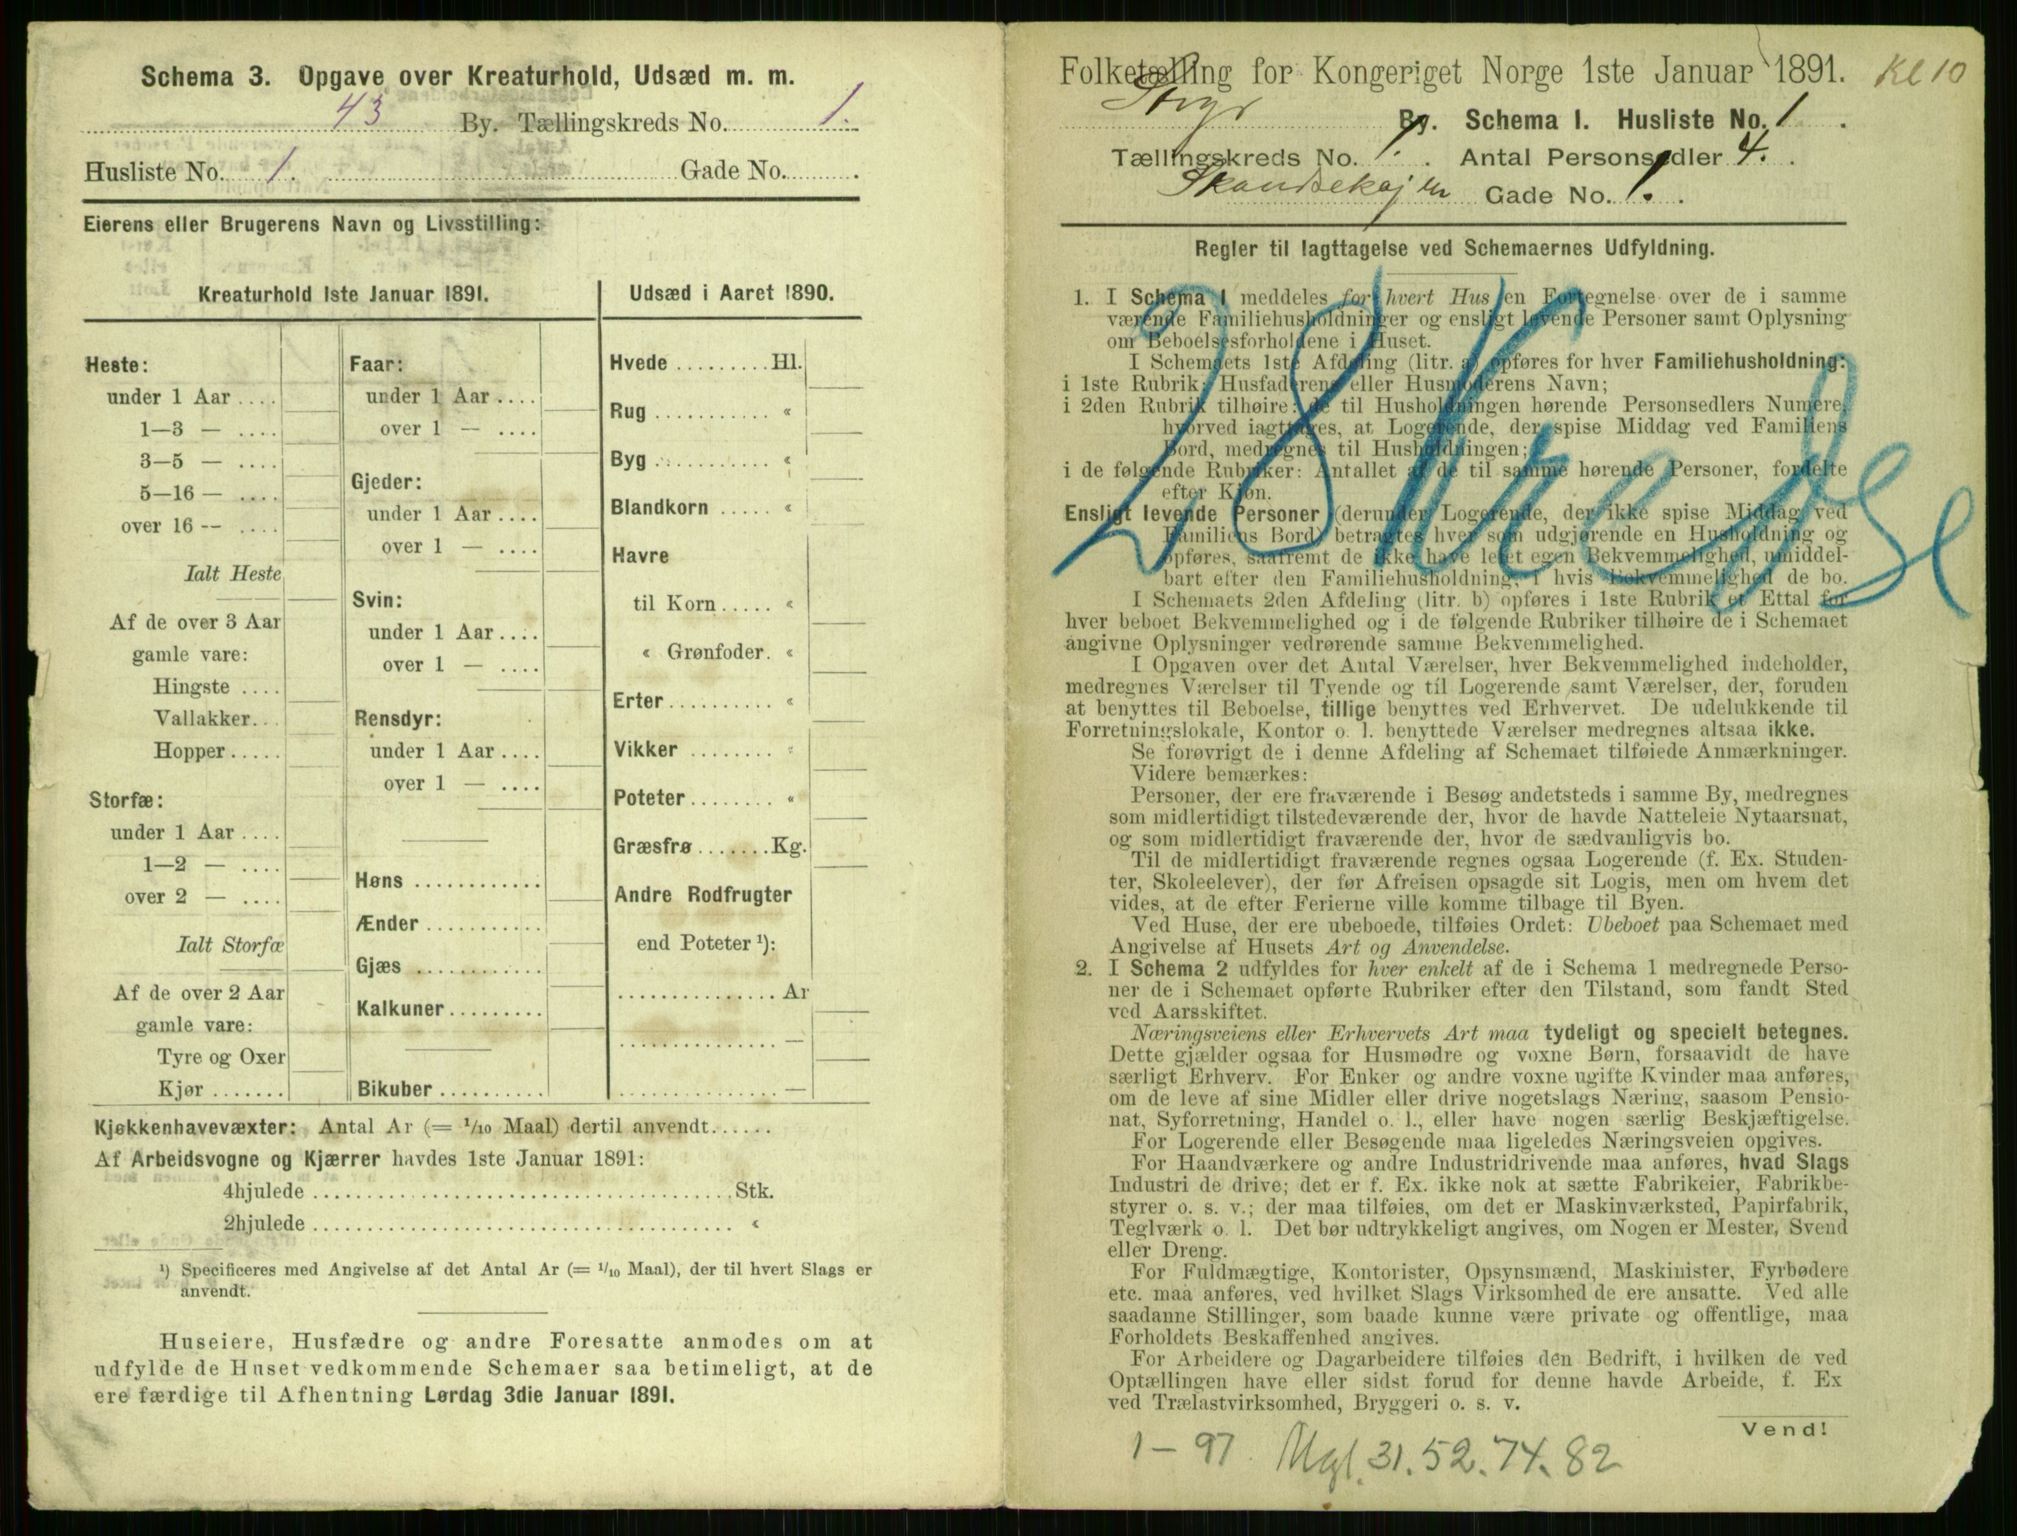 Schema 3. Opgave over Kreaturhold, Udsæd m. m.
43 By. Tællingskreds No. 1.
Husliste No. 1. Gade No.
Eierens eller Brugerens Navn og Livsstilling:
Kreaturhold 1ste Januar 1891.
Heste:
under 1 Aar ....
1—3 — ....
3—5 — ....
5—16 — ....
over 16 -- ....
Ialt Heste
Af de over 3 Aar
gamle vare:
Hingste ....
Vallakker...
Hopper.....
Storfæ:
under 1 Aar ....
1—2 — ....
over 2 — ....
Ialt Storfæ
Af de over 2 Aar
gamle vare:
Tyre og Oxer
Kjør .......
Faar:
under 1 Aar ....
over 1 — ....
Gjeder:
under 1 Aar ....
over 1 — ....
Svin:
under 1 Aar ....
over 1 — ....
Rensdyr:
under 1 Aar ....
over 1 — ....
Høns ............
Ænder ...........
Gjæs ............
Kalkuner.........
Bikuber ..........
Udsæd i Aaret 1890.
Hvede .........Hl.
Rug ........... «
Byg ........... «
Blandkorn ..... «
Havre
til Korn ..... «
« Grønfoder. «
Erter.......... «
Vikker ........ «
Poteter........ «
Græsfrø .......Kg.
Andre Rodfrugter
end Poteter ¹):
............... Ar
............... —
............... —
Kjøkkenhavevæxter: Antal Ar (= 1/10 Maal) dertil anvendt......
Af Arbeidsvogne og Kjærrer havdes 1ste Januar 1891:
4hjulede ....................................Stk.
2hjulede .................................... «
¹) Specificeres med Angivelse af det Antal Ar (= 1/10 Maal), der til hvert Slags er
anvendt.
Huseiere, Husfædre og andre Foresatte anmodes om at
udfylde de Huset vedkommende Schemaer saa betimeligt, at de
ere færdige til Afhentning Lørdag 3die Januar 1891.
Folketælling for Kongeriget Norge 1ste Januar 1891. Kl 10
By. Schema I. Husliste No. 1
Tællingskreds No. 1. Antal Personsedler 4.
Gade No. 1.
Regler til Iagttagelse ved Schemaernes Udfyldning.
28 Kreds
1. I Schema I meddeles for hvert Hus en Fortegnelse over de i samme
værende Familiehusholdninger og ensligt levende Personer samt Oplysning
om Beboelsesforholdene i Huset.
I Schemaets 1ste Afdeling (litr. a) opføres for hver Familiehusholdning:
i 1ste Rubrik: Husfaderens eller Husmoderens Navn;
i 2den Rubrik tilhøire: de til Husholdningen hørende Personsedlers Numere,
hvorved iagttages, at Logerende, der spise Middag ved Familiens
Bord, medregnes til Husholdningen;
i de følgende Rubriker: Antallet af de til samme hørende Personer, fordelte
efter Kjøn.
Ensligt levende Personer (derunder Logerende, der ikke spise Middag ved
Familiens Bord) betragtes hver som udgjørende en Husholdning og
opføres, saafremt de ikke have leiet egen Bekvemmelighed, umiddel-
bart efter den Familiehusholdning, i hvis Bekvemmelighed de bo.
I Schemaets 2den Afdeling (litr. b) opføres i 1ste Rubrik et Ettal for
hver beboet Bekvemmelighed og i de følgende Rubriker tilhøire de i Schemaet
angivne Oplysninger vedrørende samme Bekvemmelighed.
I Opgaven over det Antal Værelser, hver Bekvemmelighed indeholder,
medregnes Værelser til Tyende og til Logerende samt Værelser, der, foruden
at benyttes til Beboelse, tillige benyttes ved Erhvervet. De udelukkende til
Forretningslokale, Kontor o. l. benyttede Værelser medregnes altsaa ikke.
Se forøvrigt de i denne Afdeling af Schemaet tilføiede Anmærkninger.
Videre bemærkes:
Personer, der ere fraværende i Besøg andetsteds i samme By, medregnes
som midlertidigt tilstedeværende der, hvor de havde Natteleie Nytaarsnat,
og som midlertidigt fraværende der, hvor de sædvanligvis bo.
Til de midlertidigt fraværende regnes ogsaa Logerende (f. Ex. Studen-
ter, Skoleelever), der før Afreisen opsagde sit Logis, men om hvem det
vides, at de efter Ferierne ville komme tilbage til Byen.
Ved Huse, der ere ubeboede, tilføies Ordet: Ubeboet paa Schemaet med
Angivelse af Husets Art og Anvendelse.
2. I Schema 2 udfyldes for hver enkelt af de i Schema 1 medregnede Perso-
ner de i Schemaet opførte Rubriker efter den Tilstand, som fandt Sted
ved Aarsskiftet.
Næringsveiens eller Erhvervets Art maa tydeligt og specielt betegnes.
Dette gjælder ogsaa for Husmødre og voxne Børn, forsaavidt de have
særligt Erhverv. For Enker og andre voxne ugifte Kvinder maa anføres,
om de leve af sine Midler eller drive nogetslags Næring, saasom Pensio-
nat, Syforretning, Handel o. l., eller have nogen særlig Beskjæftigelse.
For Logerende eller Besøgende maa ligeledes Næringsveien opgives.
For Haandværkere og andre Industridrivende maa anføres, hvad Slags
Industri de drive; det er f. Ex. ikke nok at sætte Fabrikeier, Fabrikbe-
styrer o. s. v.; der maa tilføies, om det er Maskinværksted, Papirfabrik,
Teglværk o. l. Det bør udtrykkeligt angives, om Nogen er Mester, Svend
eller Dreng.
For Fuldmægtige, Kontorister, Opsynsmænd, Maskinister, Fyrbødere
etc. maa anføres, ved hvilket Slags Virksomhed de ere ansatte. Ved alle
saadanne Stillinger, som baade kunne være private og offentlige, maa
Forholdets Beskaffenhed angives.
For Arbeidere og Dagarbeidere tilføies den Bedrift, i hvilken de ved
Optællingen have eller sidst forud for denne havde Arbeide, f. Ex
ved Trælastvirksomhed, Bryggeri o. s. v.
Vend!
1 — 97 Mgl. 31. 52. 74. 82